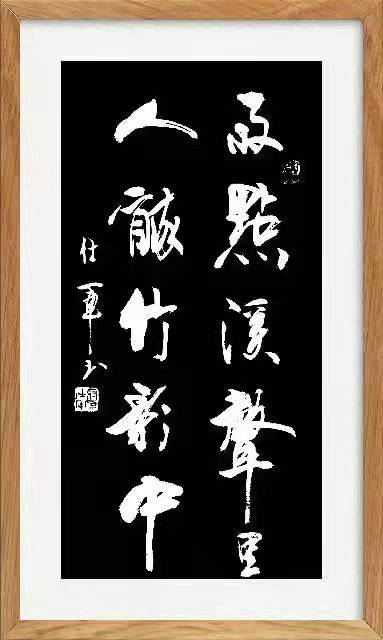 雨點溪聲里
人竹影中
仕軍书